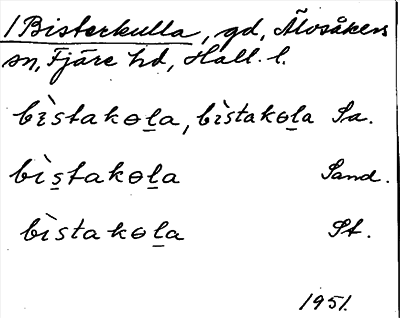 1 Bisterkulla, gd, Älvsåkers
sn, Fjäre hd, Hall. l.
bìstakɵl̲a, bìstakɵl̲a Sa.
bìs̲takɵl̲a Sand.
bìstakɵl̲a St.
1951.